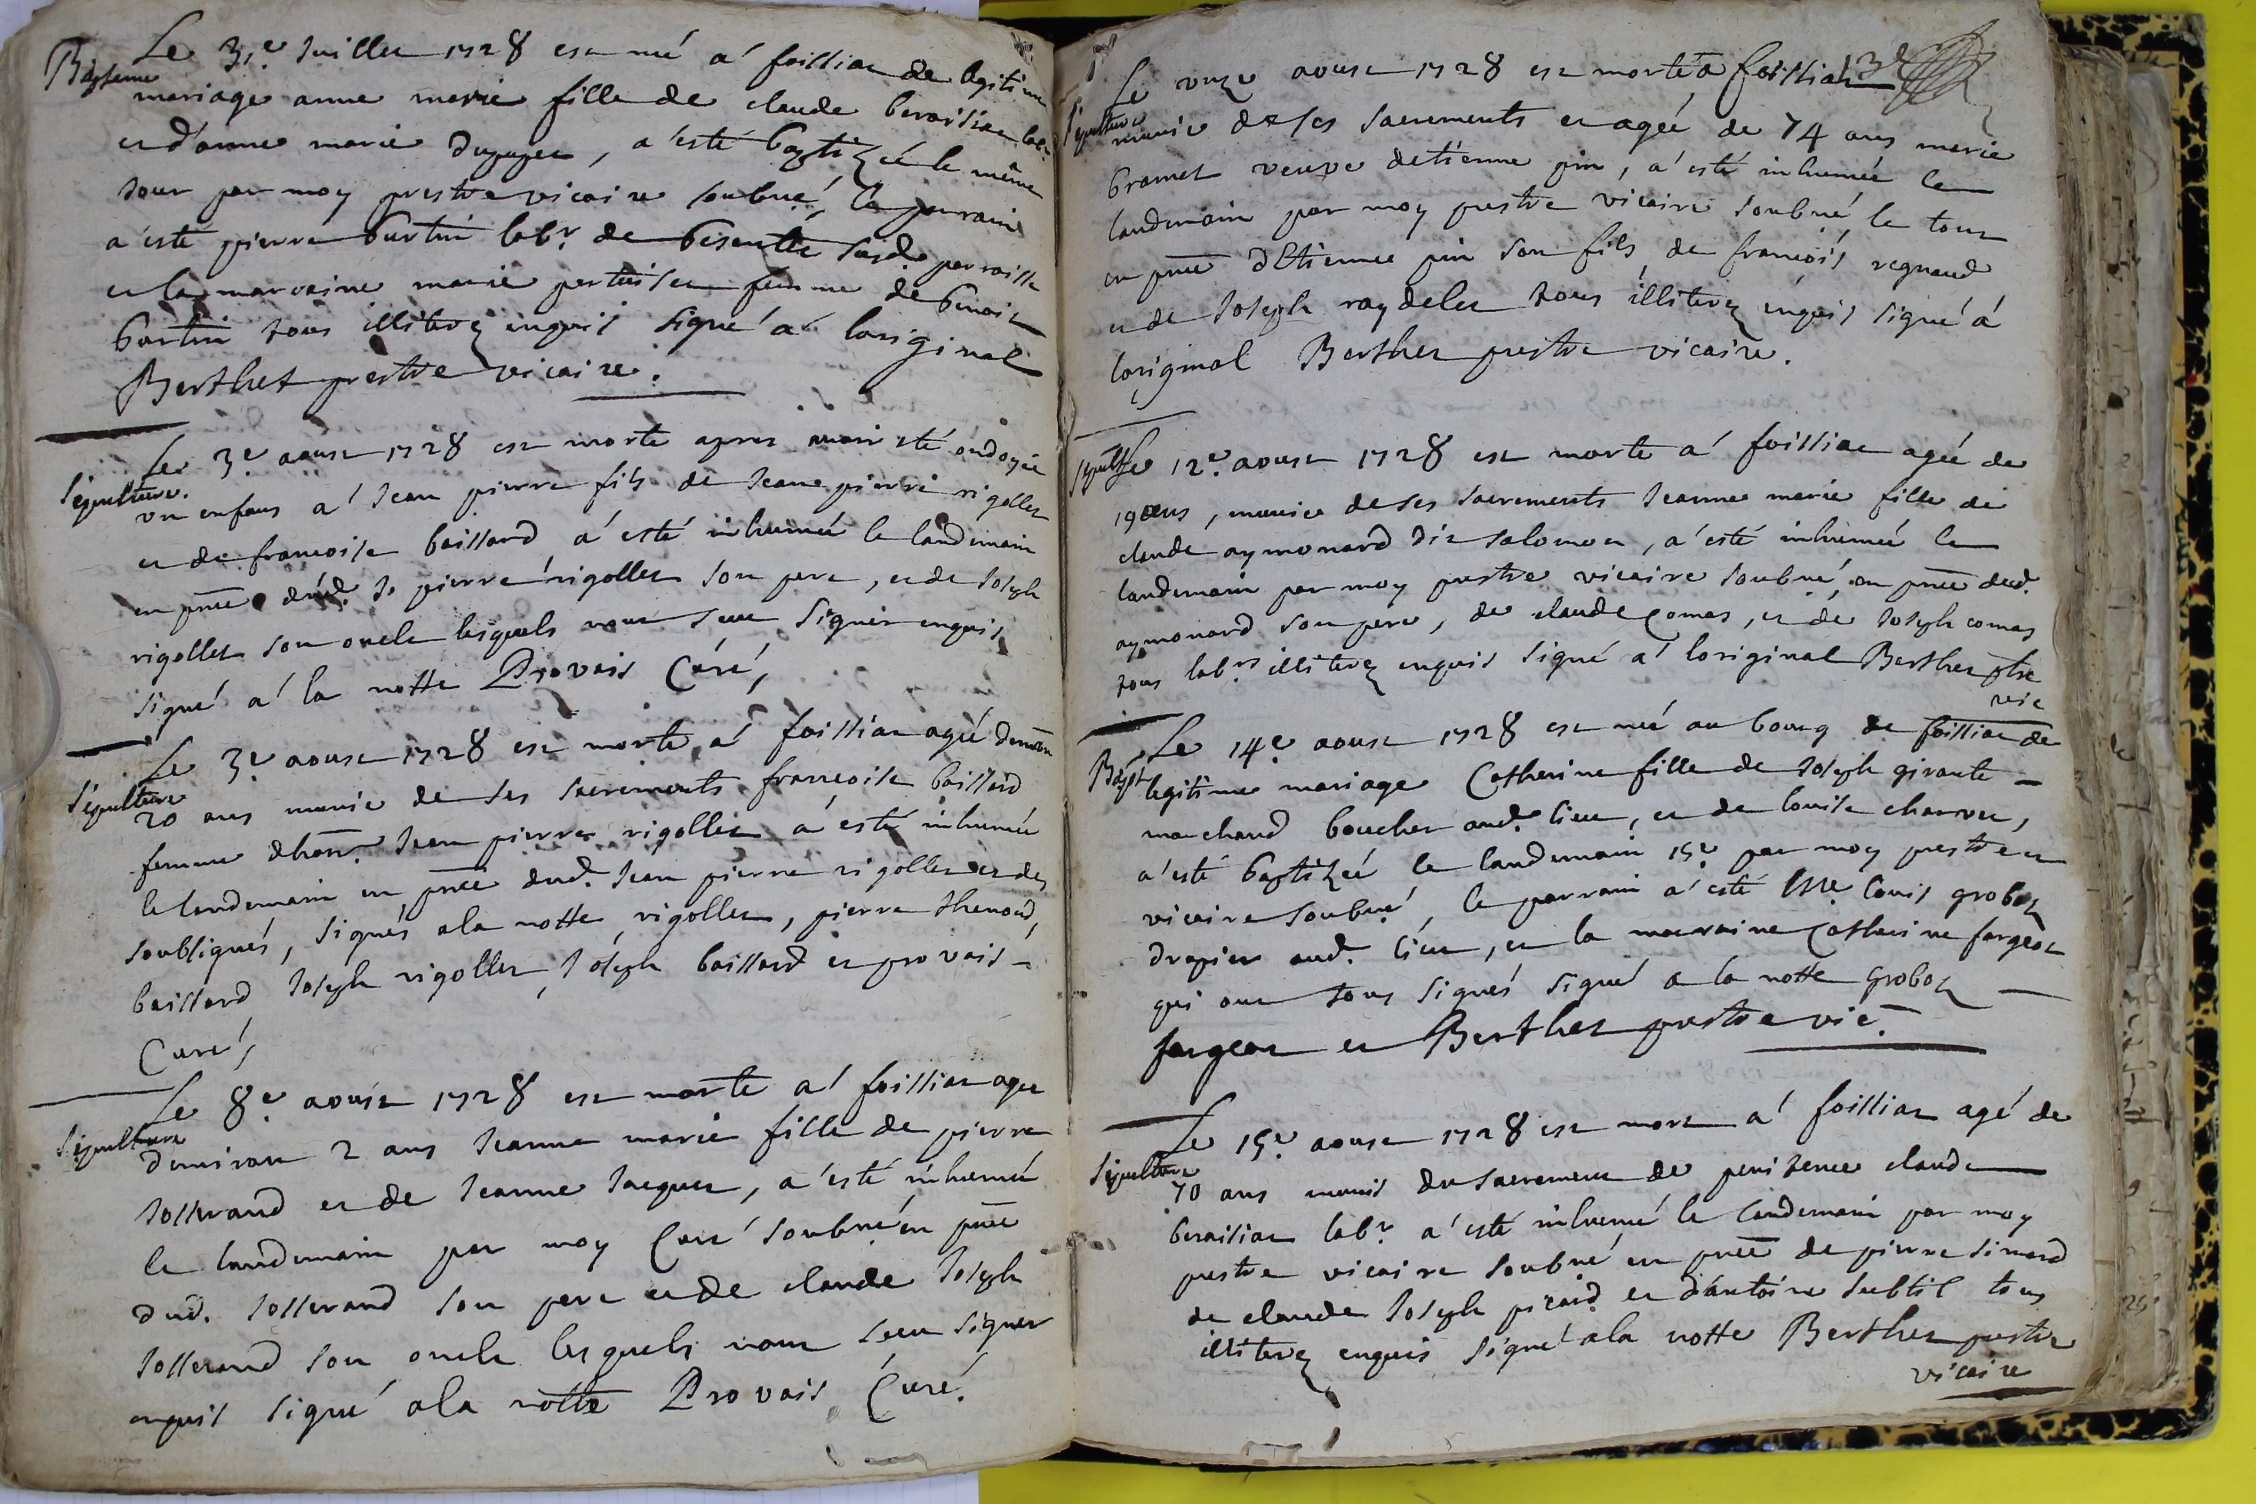 Baptesme
Le 31e Juillet 1728 est né a foissiat de legitime
mariage anne marie fille de claude beraisiat labr
et d'anne marie dupuget, a esté baptizée le même
Jour par moy prestre vicaire soubné, le parrain
a esté pierre burtin labr de besentet susde parroisse
et la marraine marie pertuiset femme de benoist
burtin tous illiterez enquis signé a loriginal
Berthet prestre vicaire.
Sepulture.
Le 3e aoust 1728 est morte apres avoir été ondoyée
un enfans a Jean pierre fils de Jean pierre rigollet
et de francoise baissard a esté inhumé le landemain
en pnce dud. J. pierre rigollet son pere, et de Joseph
rigollet son oncle lesquels nont sceu signer enquis
signé a la notte Provais Curé,
Sepulture
Le 3e aoust 1728 est morte a foissiat agée denvon
20 ans munie de ses sacrements francoise baissard
femme dhon. Jean pierre rigollet a esté inhumée
le landemain en pnce dud. Jean pierre rigollet et des
soubsignés, signés a la notte rigollet, pierre thenoud,
baissard, Joseph rigollet, Joseph baissard et provais
Curé,
Sepulture
Le 8e aoust 1728 est morte a foissiat agée
denviron 2 ans Jeanne marie fille de pierre
Josserand et de Jeanne Jaquet, a esté inhumée
le landemain par moy Curé soubné en pnce
dud. Josserand son pere et de claude Joseph
Josserand son oncle lesquels nont sceu signer
enquis signé a la notte Provais Curé.
13e
Sepulture
Le onze aoust 1728 est morte a foissiat
munie de ses sacrements et agée de 74 ans marie
bramet veuve detienne pin, a esté inhumée le
landemain par moy prestre vicaire soubné, le tout
en pnce dEtienne pin son fils, de françois regnaud
et de Joseph raydelet tous illiterez enquis signé a
loriginal Berthet prestre vicaire.
Sepult
Le 12e aoust 1728 est morte a foissiat agée de
19 ans, munie de ses sacrements Jeanne marie fille de
claude aymonard dit salomon, a esté inhumée le
landemain par moy prestre vicaire soubné, en pnce dud.
aymonard son pere, de claude comas, et de Joseph comas
tous labrs illiterez enquis signé a loriginal Berthet ptre
vic
Bapt
Le 14e aoust 1728 est née au bourg de foissiat de
legitime mariage Catherine fille de Joseph giraute
marchand boucher aud. lieu, et de louise charvet,
a esté baptizée le landemain 15e par moy prestre et
vicaire soubné, le parrain a esté Me louis groboz
drapier aud. lieu, et la marraine Catherine fargeot
qui ont tous signés signé a la notte groboz
fargeot et Berthet prestre vic.
Sepulture
Le 15e aoust 1728 est mort a foissiat agé de
70 ans munis du sacrement de penitence claude
beraisiat labr a esté inhumé le landemain par moy
prestre vicaire soubné en pnce de pierre simard
de claude Joseph picard et d'antoine subtil tous
illiterez enquis signé a la notte Berthet prestre
vicaire